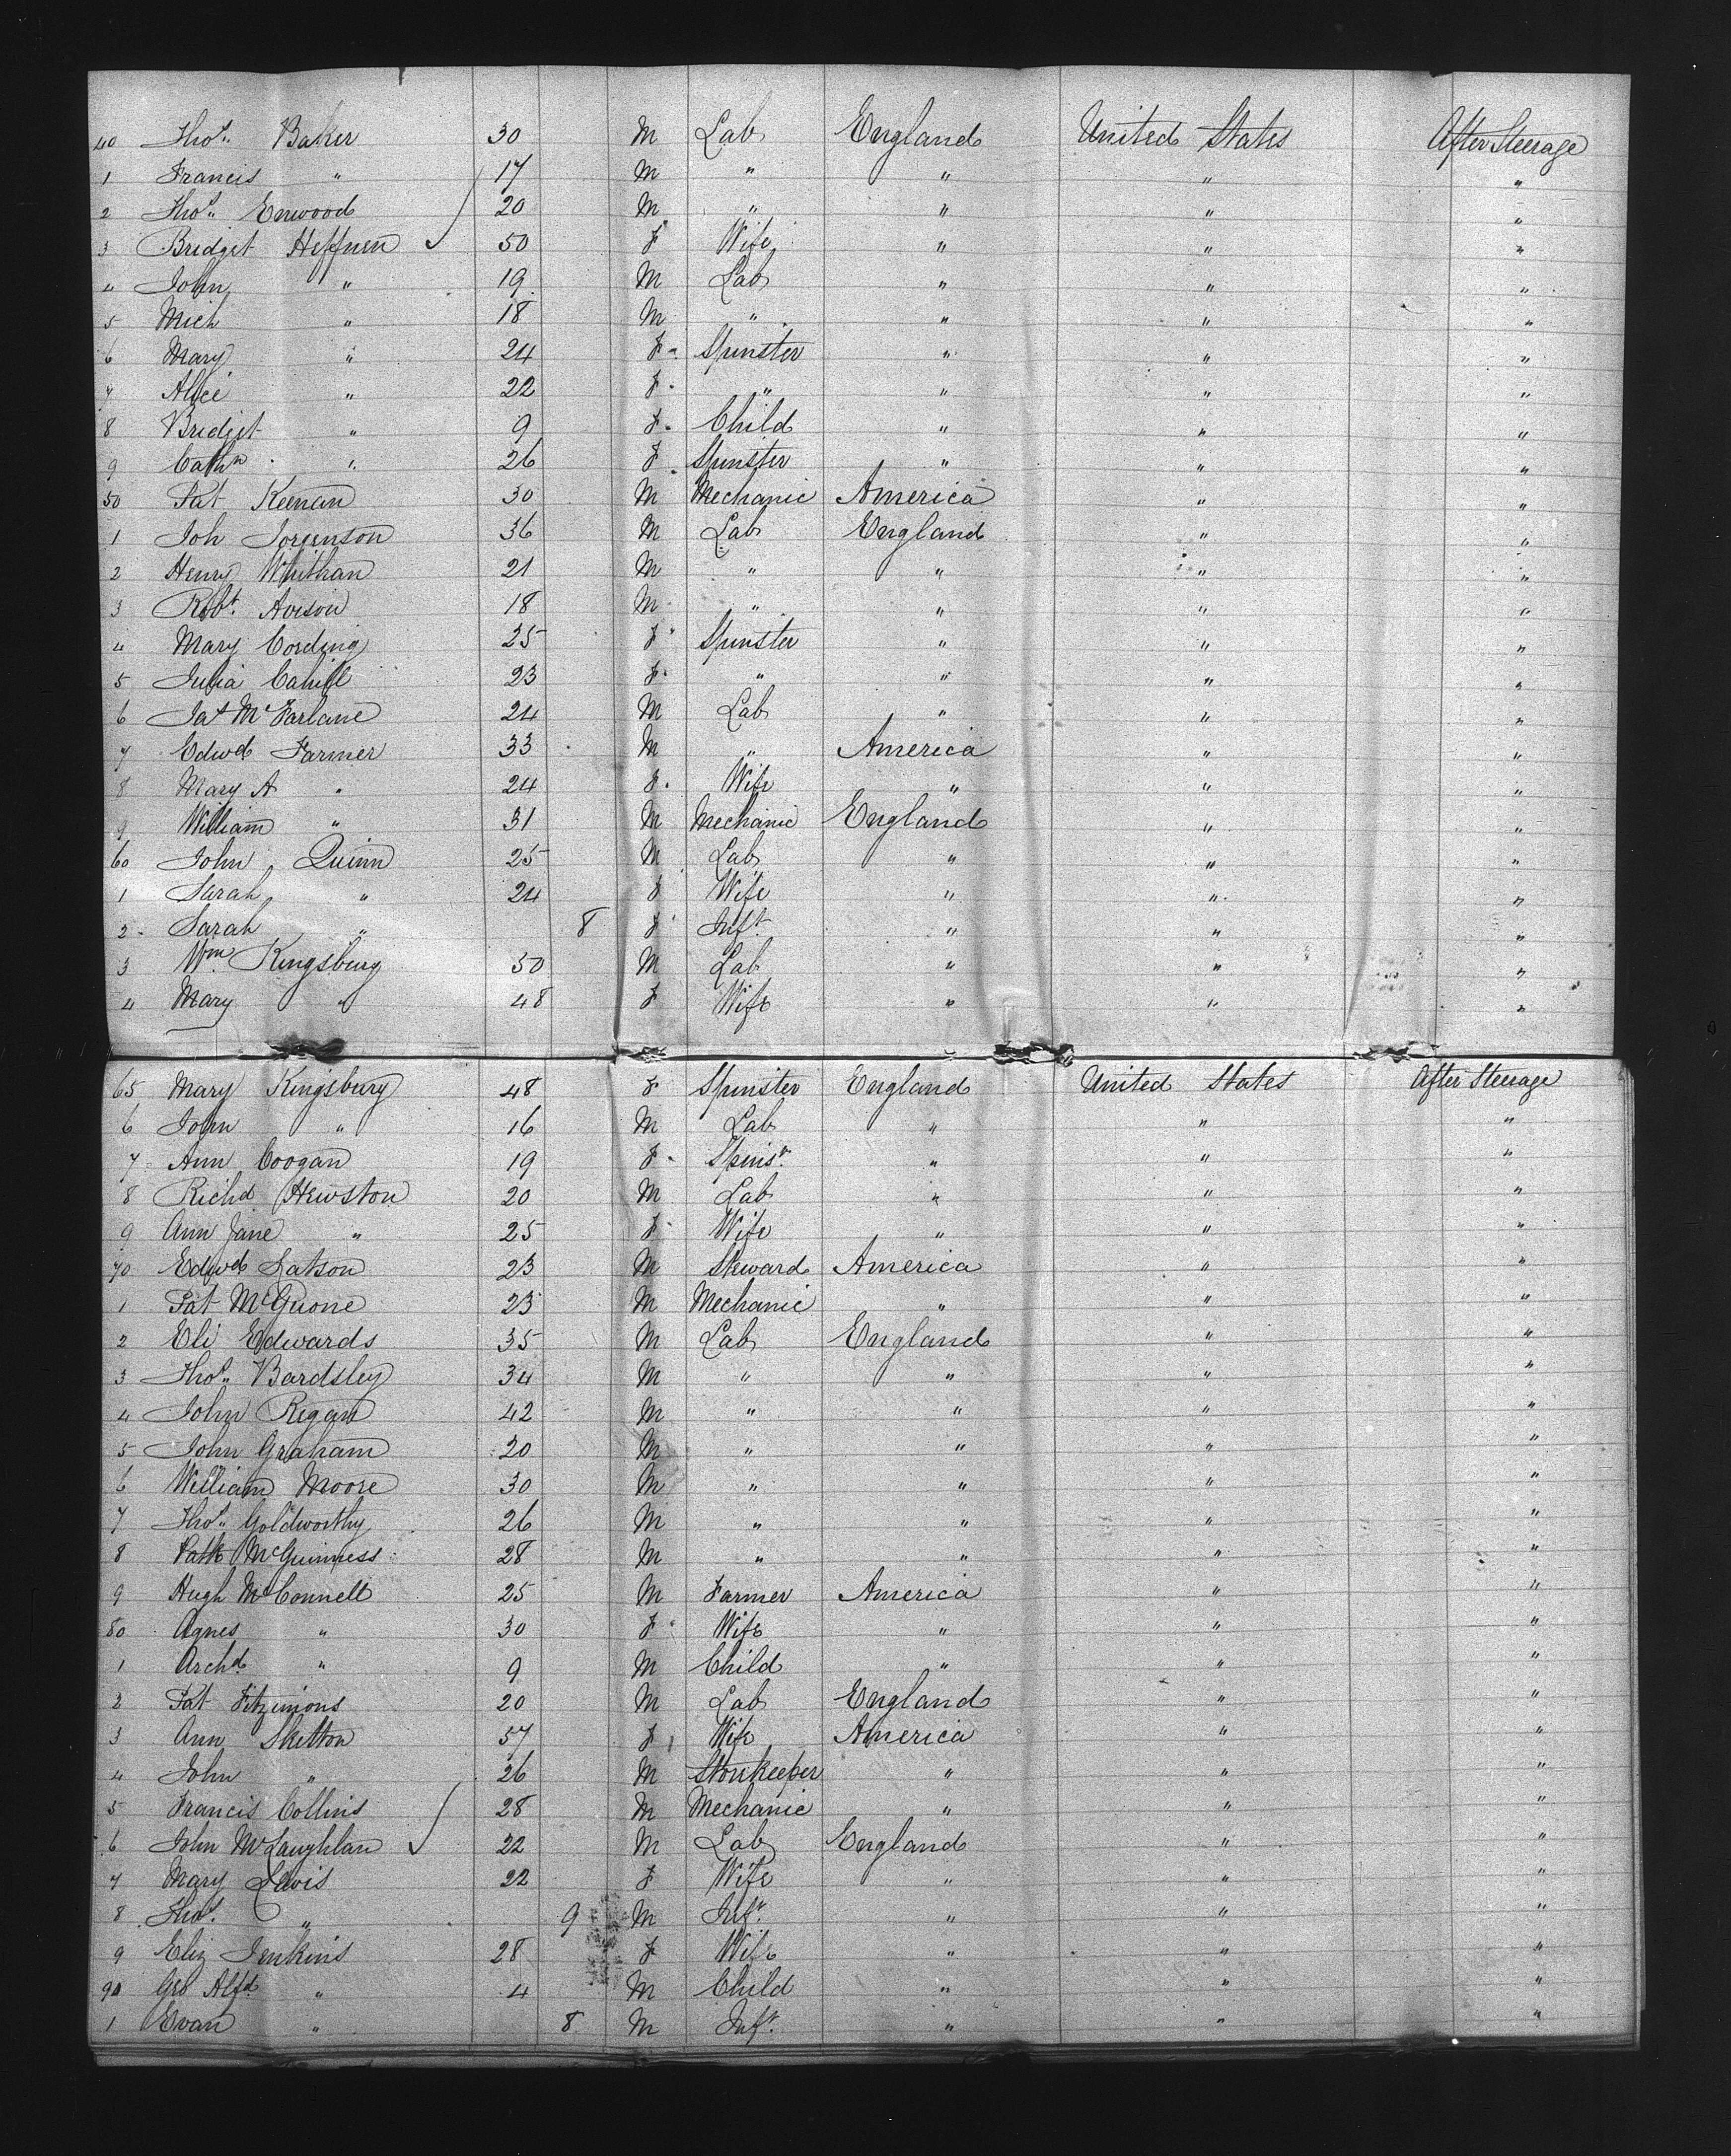 40 Thos. Baker 30 M Lab England United States After Steerage
1 Francis " 17 M " " " "
2 Thos. Enwood 20 M " " " "
3 Bridget Heffnen 50 F Wife " " "
4 John " 19 M Lab " " "
5 Mich " 18 M " " " "
6 Mary " 24 F Spinster " " "
7 Alice " 22 F " " " "
8 Bridget " 9 F Child " " "
9 Cathn " 26 F Spinster " " "
50 Pat Keenan 30 M Mechanic America " "
1 Joh Jorgenson 36 M Lab England " "
2 Henry Whithan 21 M " " " "
3 Robt. Avison 18 M " " " "
4 Mary Cording 25 F Spinster " " "
5 Julia Cahill 23 F " " " "
6 Jas McFarlane 24 M Lab " " "
7 Edwd Farmer 33 M " America " "
8 Mary A " 24 F Wife " " "
9 William " 31 M Mechanic England " "
60 John Quinn 25 M Lab " " "
1 Sarah " 24 F Wife " " "
2 Sarah " 8 F Inft. " " "
3 Wm Kingsbury 50 M Lab " " "
4 Mary " 48 F Wife " " "
65 Mary Kingsbury 48 F Spinster England United States After Steerage
6 John " 16 M Lab " " "
7 Ann Coogan 19 F Spinsr. " " "
8 Richd Hewston 20 M Lab " " "
9 Ann Jane " 25 F Wife " " "
70 Edwd Satson 23 M Steward America " "
1 Pat McGuone 23 M Mechanic " " "
2 Eli Edwards 35 M Lab England " "
3 Thos. Bardsley 34 M " " " "
4 John Regan 42 M " " " "
5 John Graham 20 M " " " "
6 William Moore 30 M " " " "
7 Thos. Goldworthy 26 M " " " "
8 Patk McGuinness 28 M " " " "
9 Hugh McConnell 25 M Farmer America " "
80 Agnes " 30 F Wife " " "
1 Archd " 9 M Child " " "
2 Pat Fitzimons 20 M Lab England " "
3 Ann Skelton 57 F Wife America " "
4 John " 26 M Storekeeper " " "
5 Francis Collins 28 M Mechanic " " "
6 John McLaughlan 22 M Lab England " "
7 Mary Lewis 22 F Wife " " "
8 Thos. " 9 M Inft. " " "
9 Eliz Jenkins 28 F Wife " " "
90 Geo Alfd " 4 M Child " " "
1 Evan " 8 M Inft. " " "